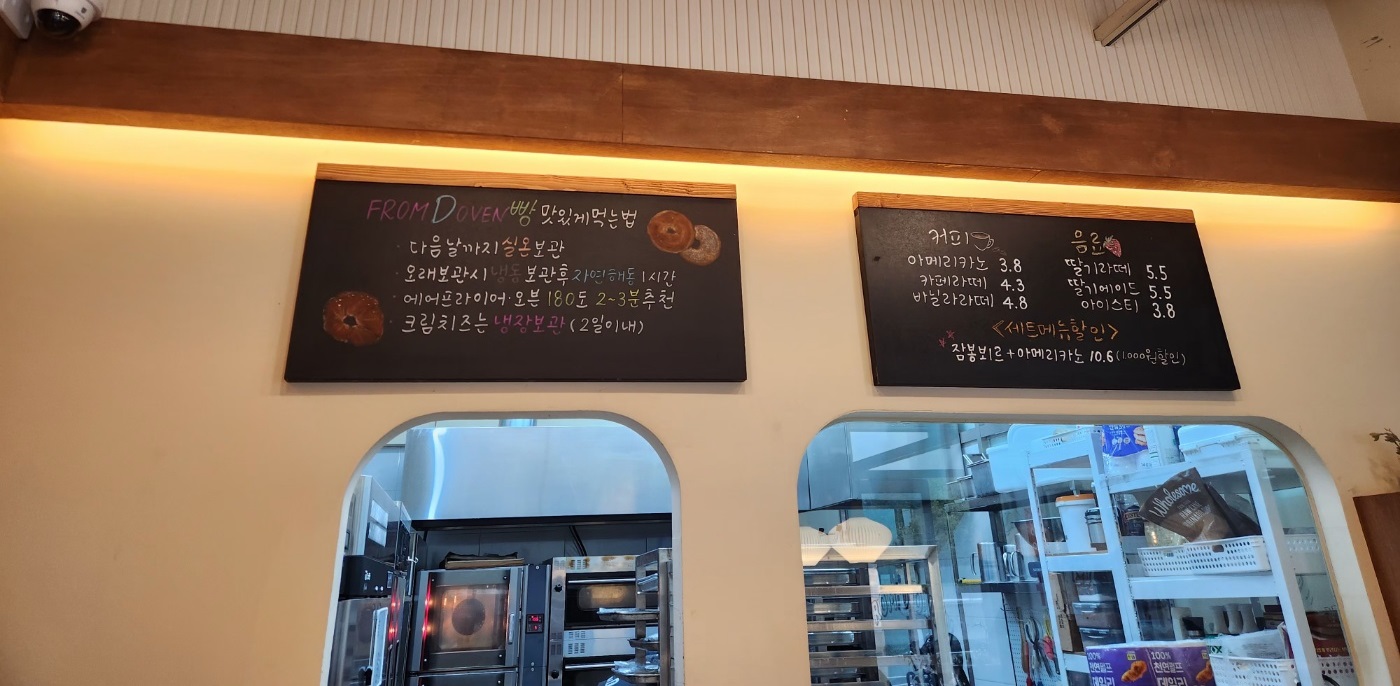 FROM DOVEN빵 맛있게먹는법
· 다음날까지실온보관
· 오래보관시냉동보관후자연해동1시간
· 에어프라이어·오븐 180도 2~3분추천
· 크림치즈는 냉장보관 (2일이내)
커피
아메리카노 3.8
카페라떼 4.3
바닐라라떼 4.8
음료
딸기라떼 5.5
딸기에이드 5.5
아이스티 3.8
<세트메뉴할인>
잠봉뵈르+아메리카노 10.6 (1,000원할인)
Wholesome
100%
100%